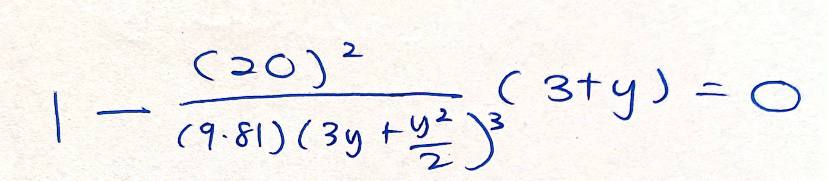 1 - \frac{(20)^2}{(9.81)(3y + \frac{y^2}{2})^3} (3+y) = 0